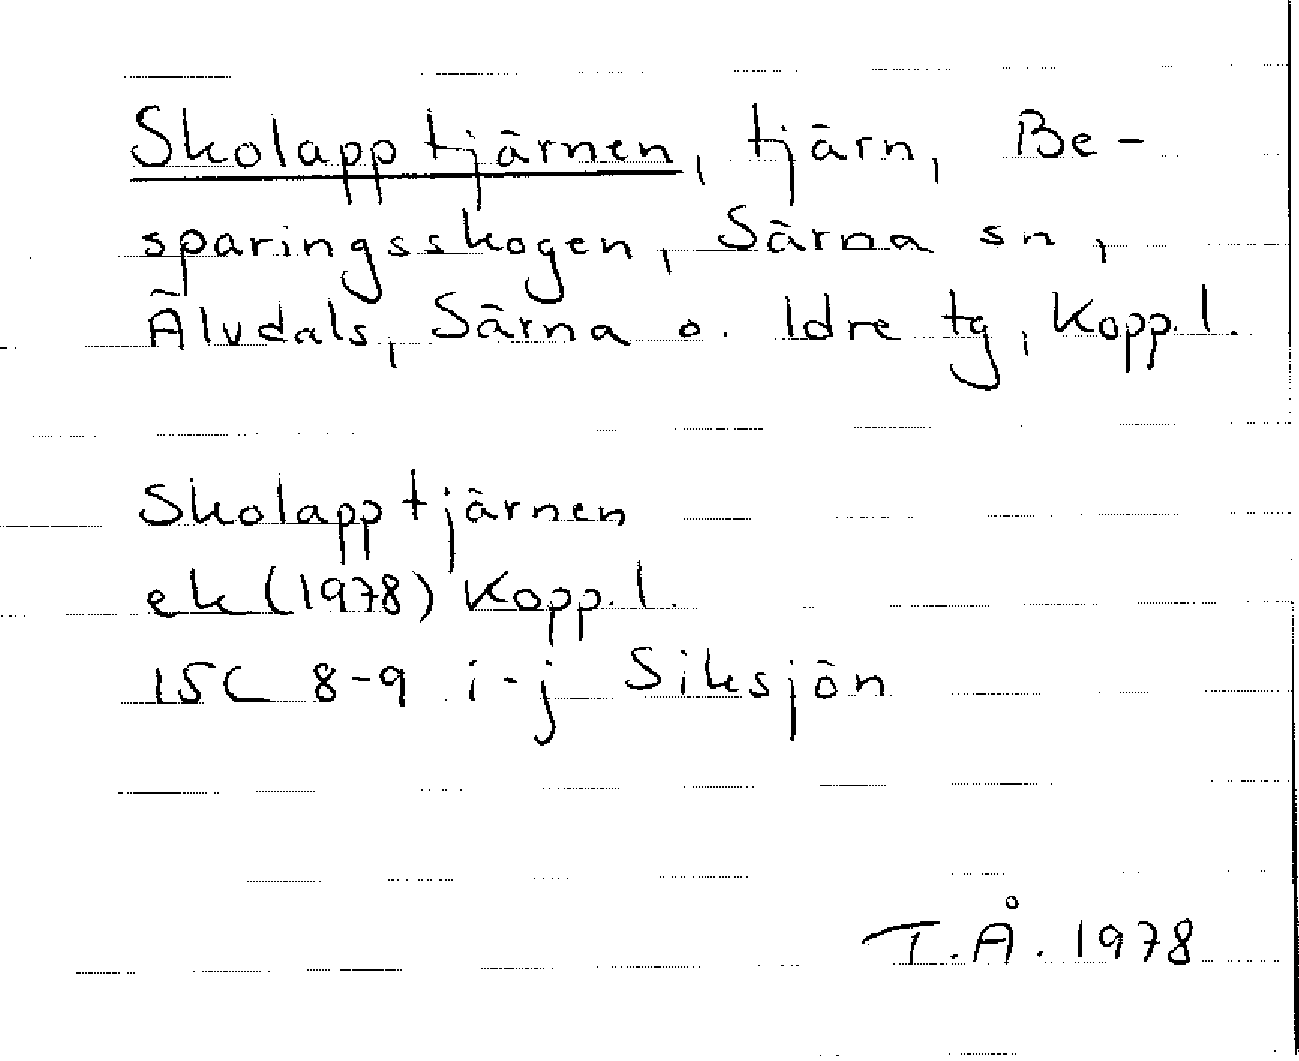 Skolapptjärnen, tjärn, Be-
sparingsskogen, Särna sn,
Älvdals, Särna o. Idre tg, Kopp. l.
Skolapptjärnen
ek (1978) Kopp. l.
15C 8-9 i-j Siksjön
T.Å. 1978